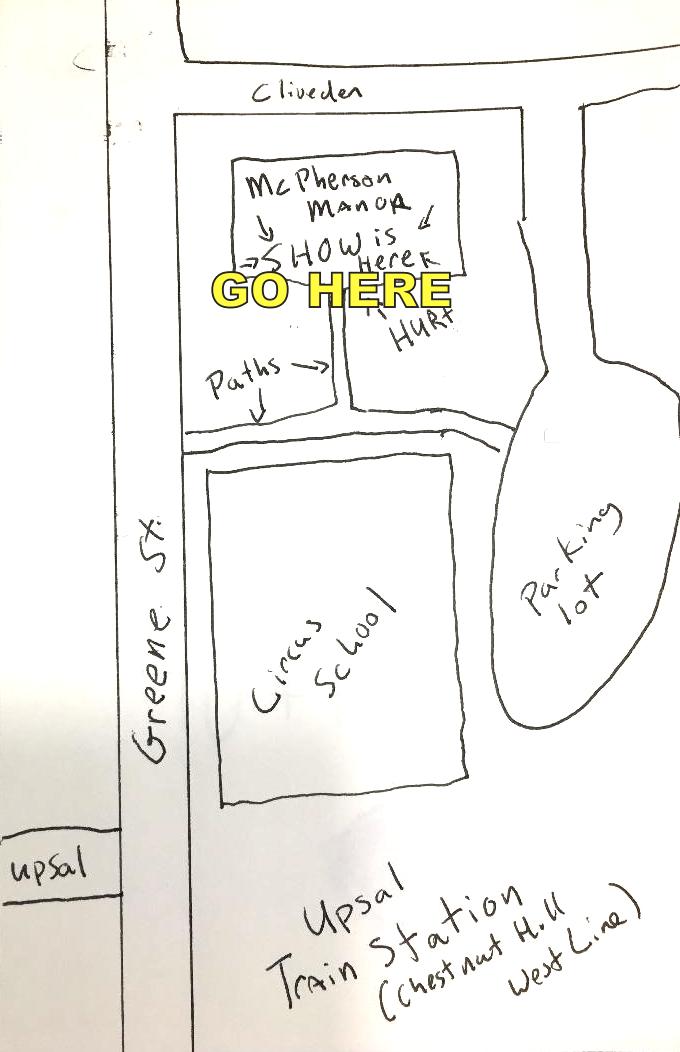 Cliveden
McPherson
MANOR
SHOW is
Here
GO HERE
HURt
Paths
Greene St.
Circus
School
Parking
lot
upsal
Upsal
Train Station
(Chestnut Hill
West Line)